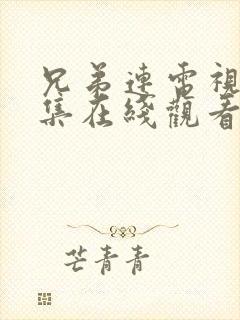 兄弟連電視
集在綫觀看
芒青青